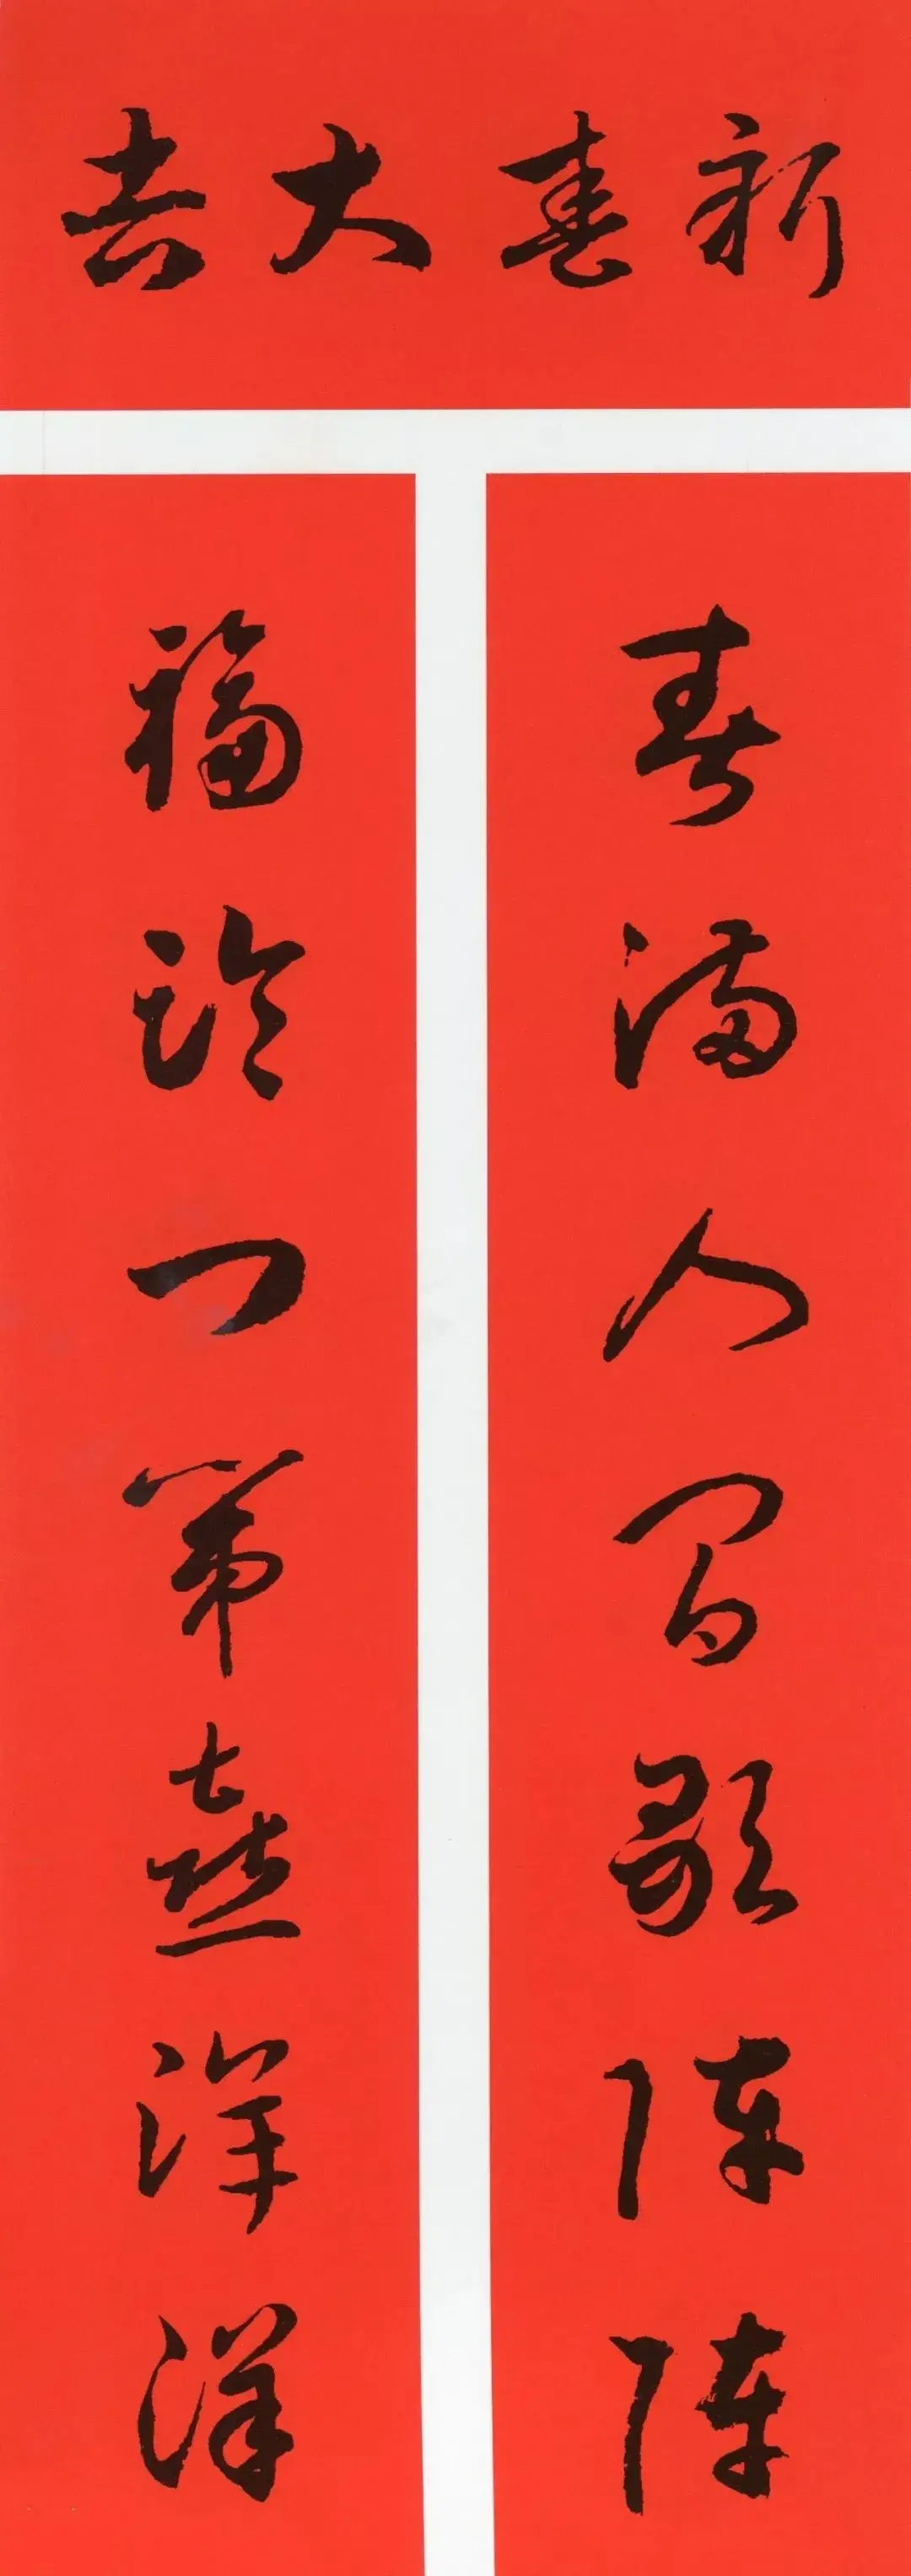 新喜大吉
春满人间歌阵阵
福临门第喜洋洋